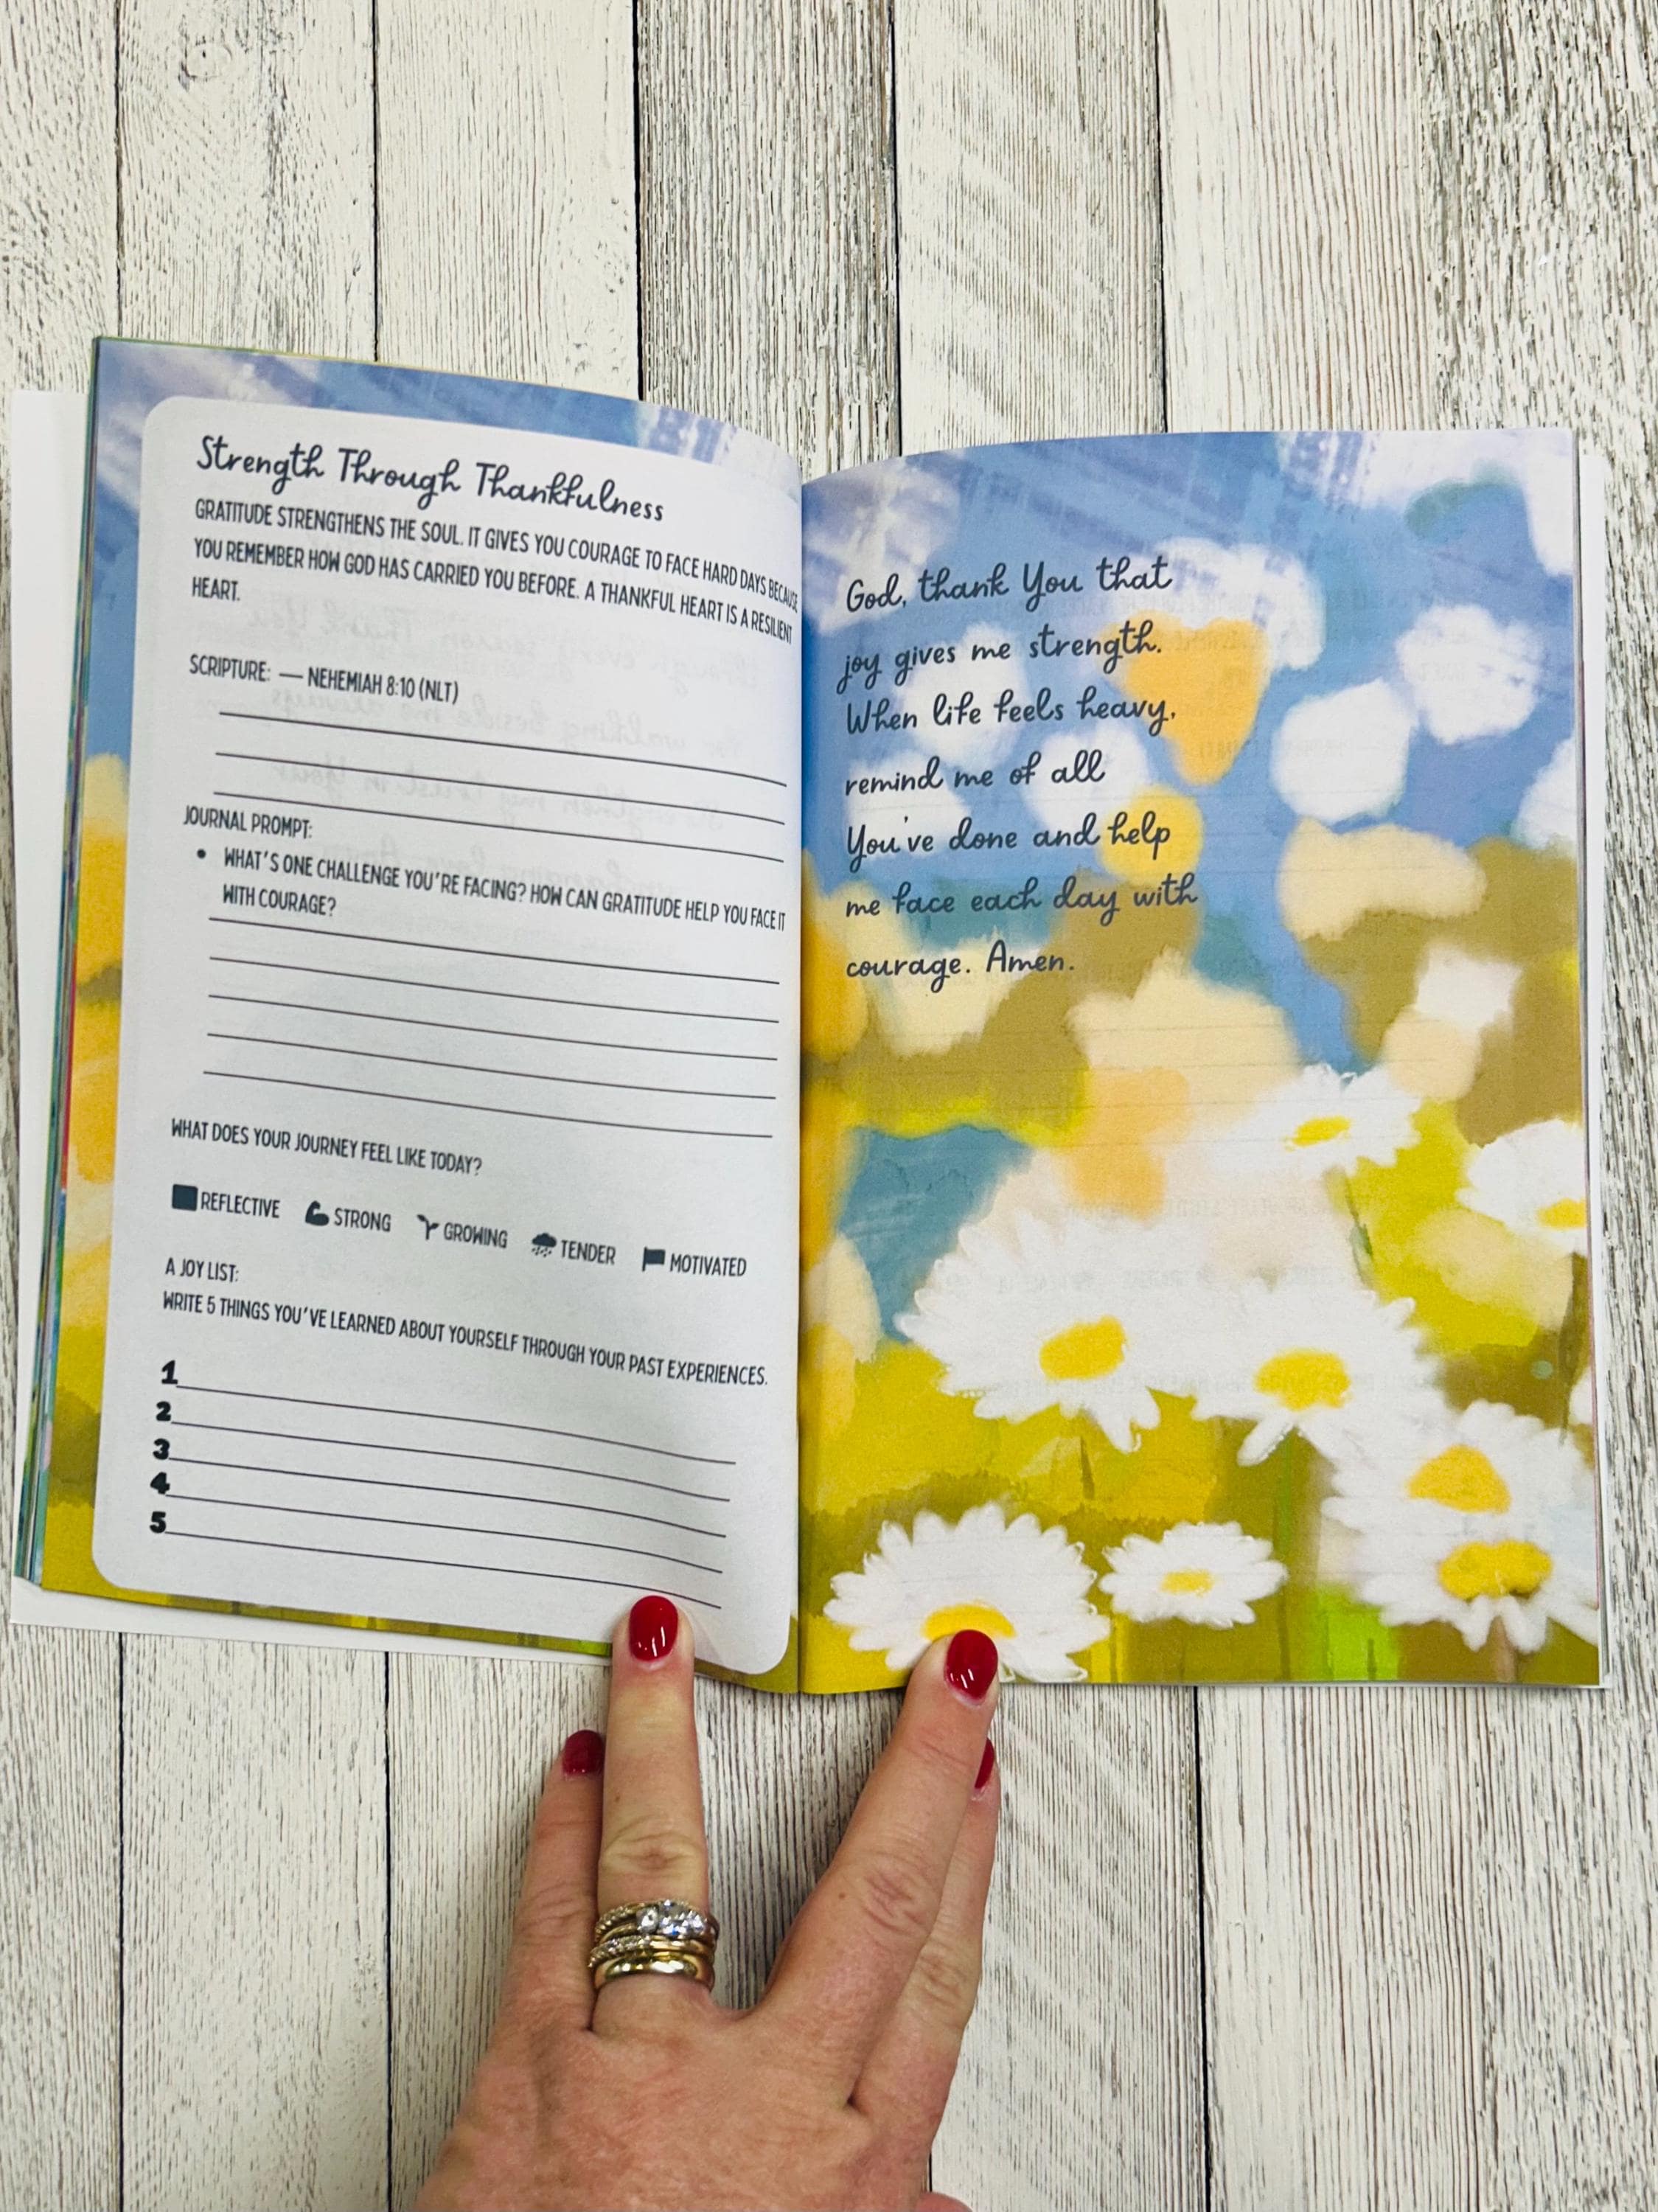 Strength Through Thankfulness
GRATITUDE STRENGTHENS THE SOUL. IT GIVES YOU COURAGE TO FACE HARD DAYS BECAUSE
YOU REMEMBER HOW GOD HAS CARRIED YOU BEFORE. A THANKFUL HEART IS A RESILIENT
HEART.
SCRIPTURE: — NEHEMIAH 8:10 (NLT)
JOURNAL PROMPT:
• WHAT'S ONE CHALLENGE YOU'RE FACING? HOW CAN GRATITUDE HELP YOU FACE IT
WITH COURAGE?
WHAT DOES YOUR JOURNEY FEEL LIKE TODAY?
REFLECTIVE STRONG GROWING TENDER MOTIVATED
A JOY LIST:
WRITE 5 THINGS YOU'VE LEARNED ABOUT YOURSELF THROUGH YOUR PAST EXPERIENCES.
1
2
3
4
5
God, thank You that
joy gives me strength.
When life feels heavy,
remind me of all
You've done and help
me face each day with
courage. Amen.